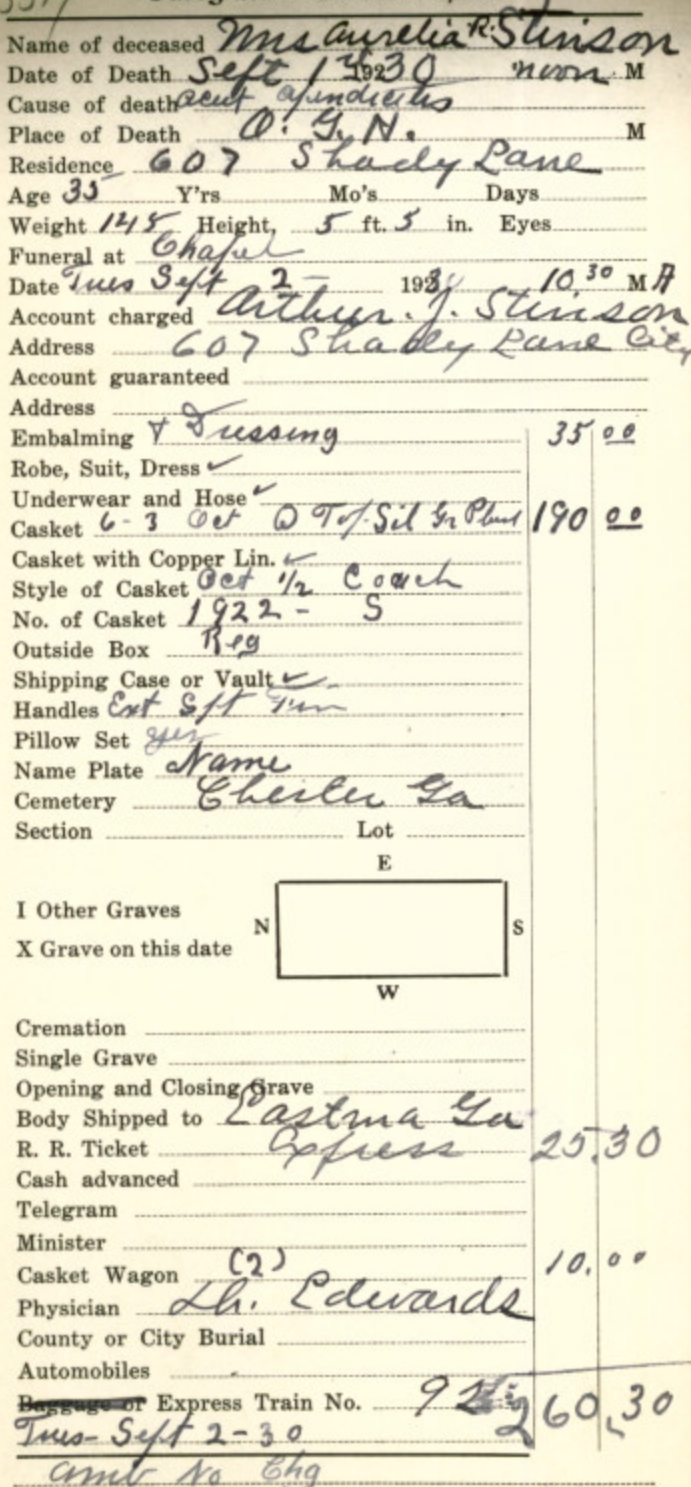 Name of deceased Mrs Aurelia R. Stinson
Date of Death Sept 1st 1930 noon M
Cause of death acut apindicites
Place of Death O. G. H. M
Residence 607 Shady Lane
Age 35 Y'rs Mo's Days
Weight 145 Height, 5 ft. 5 in. Eyes
Funeral at Chapel
Date Tues Sept 2- 193 10.30 M A
Account charged Arthur. J. Stinson
Address 607 Shady Lane City
Account guaranteed
Address
Embalming & Dressing 35 00
Robe, Suit, Dress ✓
Underwear and Hose ✓
Casket 6-3 Oct Sil Gr Plush 190 00
Casket with Copper Lin. ✓
Style of Casket Oct 1/2 Couch
No. of Casket 1922- S
Outside Box Reg
Shipping Case or Vault ✓
Handles Ext Sft
Pillow Set yes
Name Plate Name
Cemetery Chester Ga
Section Lot
E
I Other Graves
N S
X Grave on this date
W
Cremation
Single Grave
Opening and Closing Grave
Body Shipped to Eastma Ga
R. R. Ticket Express 25.30
Cash advanced
Telegram
Minister
Casket Wagon (2) 10.00
Physician Dr. Edwards
County or City Burial
Automobiles
Baggage or Express Train No. 92 260.30
Tues- Sept 2-30
Amb No Chg